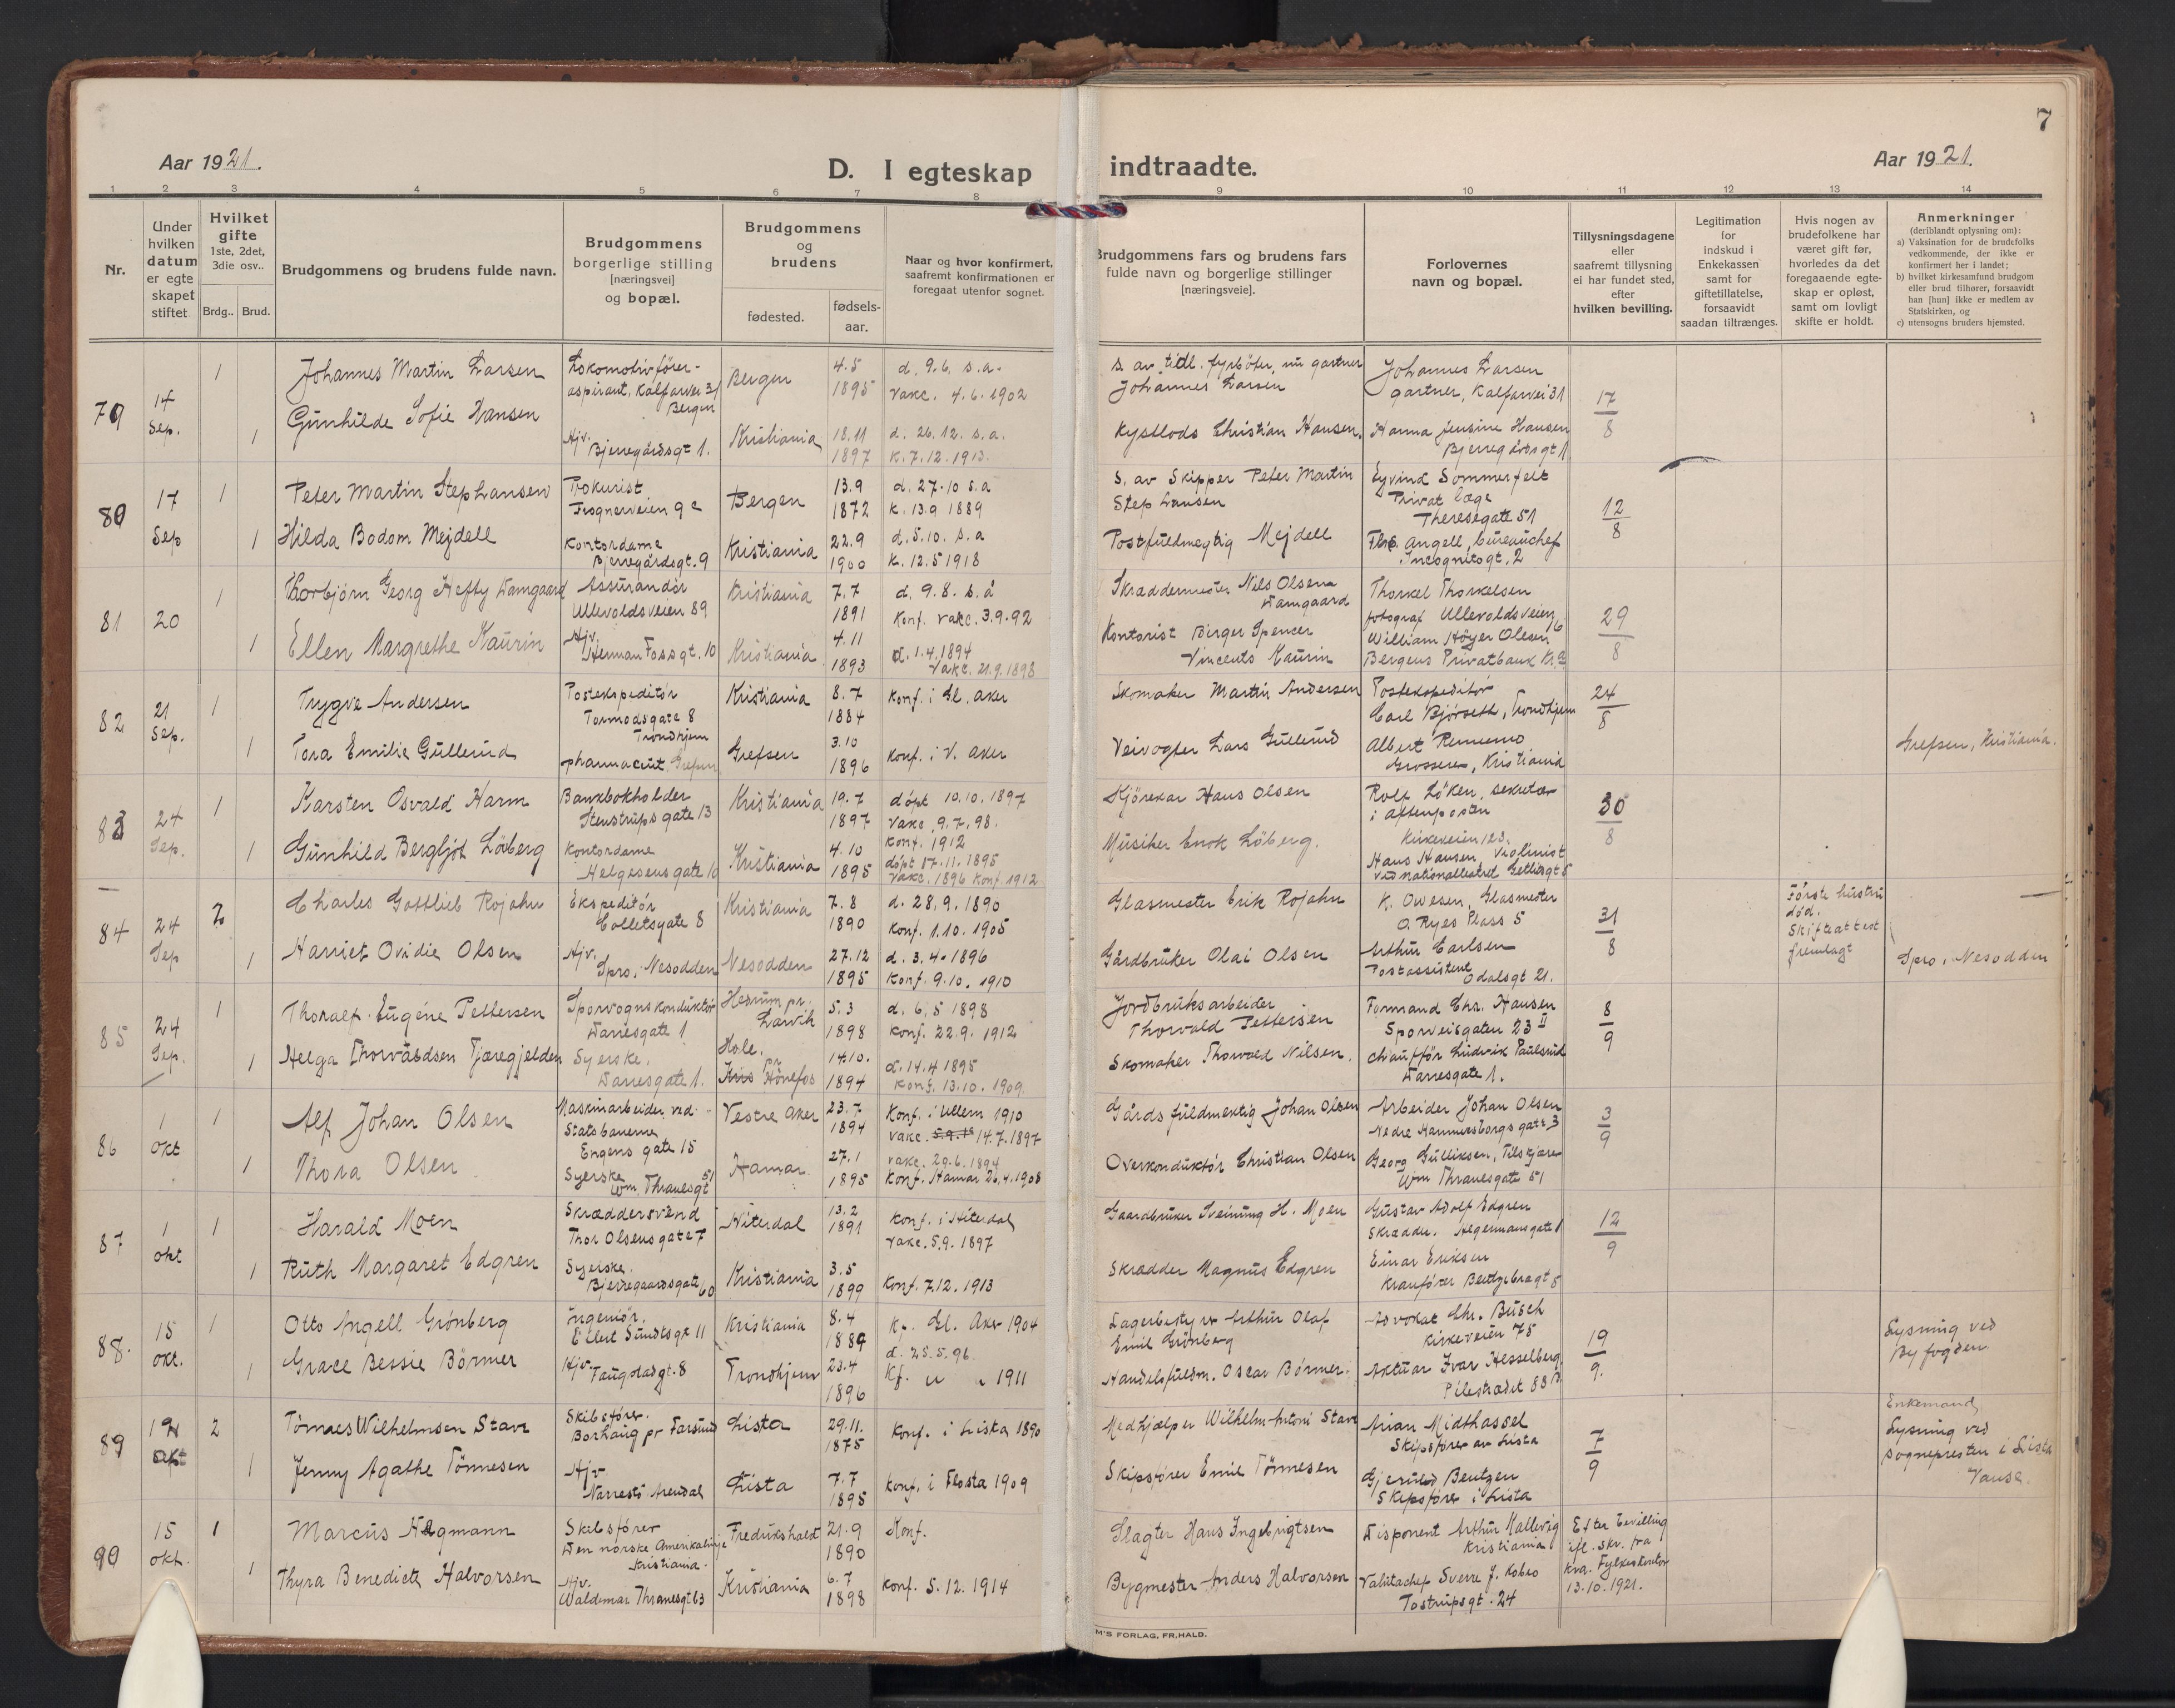 7
Aar 1921.
D. I egteskap indtraadte.
Aar 1921.
1 2 3 4 5 6 7 8 9 10 11 12 13 14
Nr.
Under hvilken datum er egteskapet stiftet.
Hvilket gifte 1ste, 2det, 3die osv..
Brdg.. Brud.
Brudgommens og brudens fulde navn.
Brudgommens borgerlige stilling [næringsvei] og bopæl.
Brudgommens og brudens
fødested.
fødsels-aar.
Naar og hvor konfirmert, saafremt konfirmationen er foregaat utenfor sognet.
Brudgommens fars og brudens fars fulde navn og borgerlige stillinger [næringsveie].
Forlovernes navn og bopæl.
Tillysningsdagene eller saafremt tillysning ei har fundet sted, efter hvilken bevilling.
Legitimation for indskud i Enkekassen samt for giftetillatelse, forsaavidt saadan tiltrænges.
Hvis nogen av brudefolkene har været gift før, hvorledes da det foregaaende egteskap er opløst, samt om lovligt skifte er holdt.
Anmerkninger (deriblandt oplysning om):
a) Vaksination for de brudefolks vedkommende, der ikke er konfirmert her i landet;
b) hvilket kirkesamfund brudgom eller brud tilhører, forsaavidt han [hun] ikke er medlem av Statskirken, og
c) utensogns bruders hjemsted.
79 14 Sep. 1 Johannes Martin Larsen Lokomotivfører-aspirant, Kalfarvei 31 Bergen Bergen 4.5 1895 d. 9.6. s.a. Vakc. 4.6.1902 s. av tidl. fyrbøter, nu gartner Johannes Larsen Johannes Larsen gartner, Kalfarvei 31 17/8
1 Gunhilde Sofie Hansen Hjv. Bjerregårdsgt 1. Kristiania 18.11 1897 d. 26.12. s.a. K. 7.12.1913. Kystlods Christian Hansen. Hanna Jensine Hansen Bjerregårdsgt 1
80 17 Sep 1 Peter Martin Stephansen Prokurist Frognerveien 9 c Bergen 13.9 1872 d. 27.10 s.a K. 13.9 1889 S. av Skipper Peter Martin Stephansen Eyvind Sommerfelt Privat læge Theresegate 51 12/8
1 Hilda Bodom Mejdell Kontordame Bjerregårdsgt. 9 Kristiania 22.9 1900 d. 5.10. s.a K. 12.5 1918 Postfuldmegtig Mejdell Angell, bureauchef Incognitogt. 2
81 20 1 Thorbjørn Georg Hefty Damgaard Assurandør Ullevoldsveien 89 Kristiania 7.7 1891 d. 9.8. s.å Konf. vakc. 3.9.92 Skraddermester Nils Olsen Damgaard Thorkel Thorkelsen fotograf Ullevoldsveien 6 29/8
1 Ellen Margrethe Kaurin Hjv. Herman Fossgt. 10 Kristiania 4.11 1893 d. 1.4.1894 Vakc. 21.9.1898 Kontorist Birger Spencer Vincents Kaurin William Høyer Olesen Bergens Privatbank Kr.a
82 21 Sep. 1 Trygve Andersen Postekspeditør Tormodsgate 8 Trondhjem Kristiania 8.7 1884 Konf. i Gl. Aker Skomaker Martin Andersen Postekspeditør Carl Bjørseth, Trondhjem 24/8
1 Tora Emilie Gullerud pharmaceut Grefsen Grefsen 3.10 1896 Konf. i V. Aker Veivogter Lars Gullerud Albert Grosserer, Kristiania Grefsen, Kristiania.
83 24 Sep. 1 Karsten Osvald Harm Bankbokholder Stenstrups gate 13 Kristiania 19.7 1897 døpt 10.10.1897 Vakc. 9.7.98. Konf. 1912 Kjørekar Hans Olsen Rolf Løken, sekretær i Aftenposten Kirkeveien 123. 30/8
1 Gunhild Bergljot Løberg Kontordame Helgesens gate 10 Kristiania 4.10 1895 døpt 17.11.1895 Vakc. 1896 Konf. 1912 Musiker Enok Løberg. Hans Hansen, violinist ved nationalteatret
84 24 Sep 2 Charles Gottlieb Rojahn Ekspeditør Colletsgate 8 Kristiania 7.8 1890 d. 28.9.1890 Konf. 1.10.1905 Glasmester Erik Rojahn K. Owesen, Glasmester O. Ryes Plass 5 31/8 Første hustru død. Skifteattest fremlagt
1 Harriet Ovidie Olsen Hjv. Spro, Nesodden Nesodden 27.12 1895 d. 3.4.1896 Konf. 9.10.1910 Gårdbruker Olai Olsen Arthur Carlsen Postassistent Odalsgt 21. Spro, Nesodden
85 24 Sep. 1 Thoralf Eugéne Pettersen Sporvognskonduktør Darresgate 1 Hedrum pr. Larvik 5.3 1898 d. 6.5 1898 Konf. 22.9.1912 Jordbruksarbeider Thorvald Pettersen Formand Chr. Hansen Sporveisgaten 23 II 8/9
1 Helga Thorvaldsen Tjæregjelden Syerske. Darresgate 1. Hole. pr. Hønefos 14.10. 1894 d. 14.4 1895 Konf. 13.10.1909 Skomaker Thorvald Nilsen. Chauffør Ludvik Paulsrud Darresgate 1.
86 1 Okt 1 Alf Johan Olsen Maskinarbeider ved Statsbanerne Engens gate 15 Vestre Aker 23.7 1894 Konf. i Ullern 1910 vakc. 14.7.1897 Gårdsfuldmektig Johan Olsen Arbeider Johan Olsen Nedre Hammersborgs gate 3 3/9
1 Thora Olsen Syerske Wm. Thranesgt 51 Hamar 27.1 1895 vakc. 29.6.1894 Konf. Hamar 26.4.1908 Overkonduktør Christian Olsen Georg Gulliksen, Tilskjærer Wm Thranesgate 51
87 1 okt 1 Harald Moen Skræddersvend Thor Olsens gate 7 Hiterdal 13.2 1891 Konf. i Hiterdal Vakc. 5.9.1897 Gaardbruker Sveinung H. Moen Gustav Adolf Edgren Skrædder. Hegermansgate 1 12/9
1 Ruth Margaret Edgren Syerske. Bjerregaardsgate 60 Kristiania 3.5 1899 Konf. 7.12.1913 Skrædder Magnus Edgren Einar Eriksen Kranfører Bentzebrogt 8
88. 15 okt. 1 Otto Angell Grønberg Ingeniør. Eilert Sundtsgt 11 Kristiania 8.4 1889 Kf. Gl. Aker 1904 Lagerbestyrer Arthur Olaf Emil Grønberg Advokat Chr. Busch Kirkeveien 75 19/9. Lysning ved Byfogden
1 Grace Bessie Børmer Hjv. Fauqstadgt. 8 Trondhjem 23.4 1896 d. 25.5.96. Kf. " " 1911 Handelsfuldm. Oscar Børmer. Aktuar Ivar Hesselberg. Pilestrædet 88
89 Okt 2 Tønnes Wilhelmsen Stave Skibsfører. Borhaug pr Farsund Lista 29.11. 1875 Konf. i Lista 1890 Medhjælper Wilhelm Antoni Stave Arian Midthassel Skipsfører av Lista 7/9 Enkemand Lysning ved sognepresten i Lista Vanse.
1 Jenny Agathe Tönnesen Hjv. Narrestø Arendal Lista 7.7 1895 Konf. i Flosta 1909 Skipsfører Emil Tønnesen Gjerulf Bentzen Skipsfører i Lista
90 15 okt. 1 Marcus Hagmann Skibsfører Den norske Amerikalinje Kristiania. Fredrikshald 21.9 1890 Konf. Slagter Hans Ingebrigtsen Disponent Arthur Kallevig Kristiania Efter bevilling ifl. skr. fra Kra. Fylkeskontor 13.10.1921.
1 Thyra Benedicte Halvorsen Hjv. Waldemar Thranesgt 63 Kristiania 6.7 1898 Konf. 5.12.1914 Bygmester Anders Halvorsen Valutachef Sverre J. Tostrupsgt. 24
M'S FORLAG, FR,HALD.